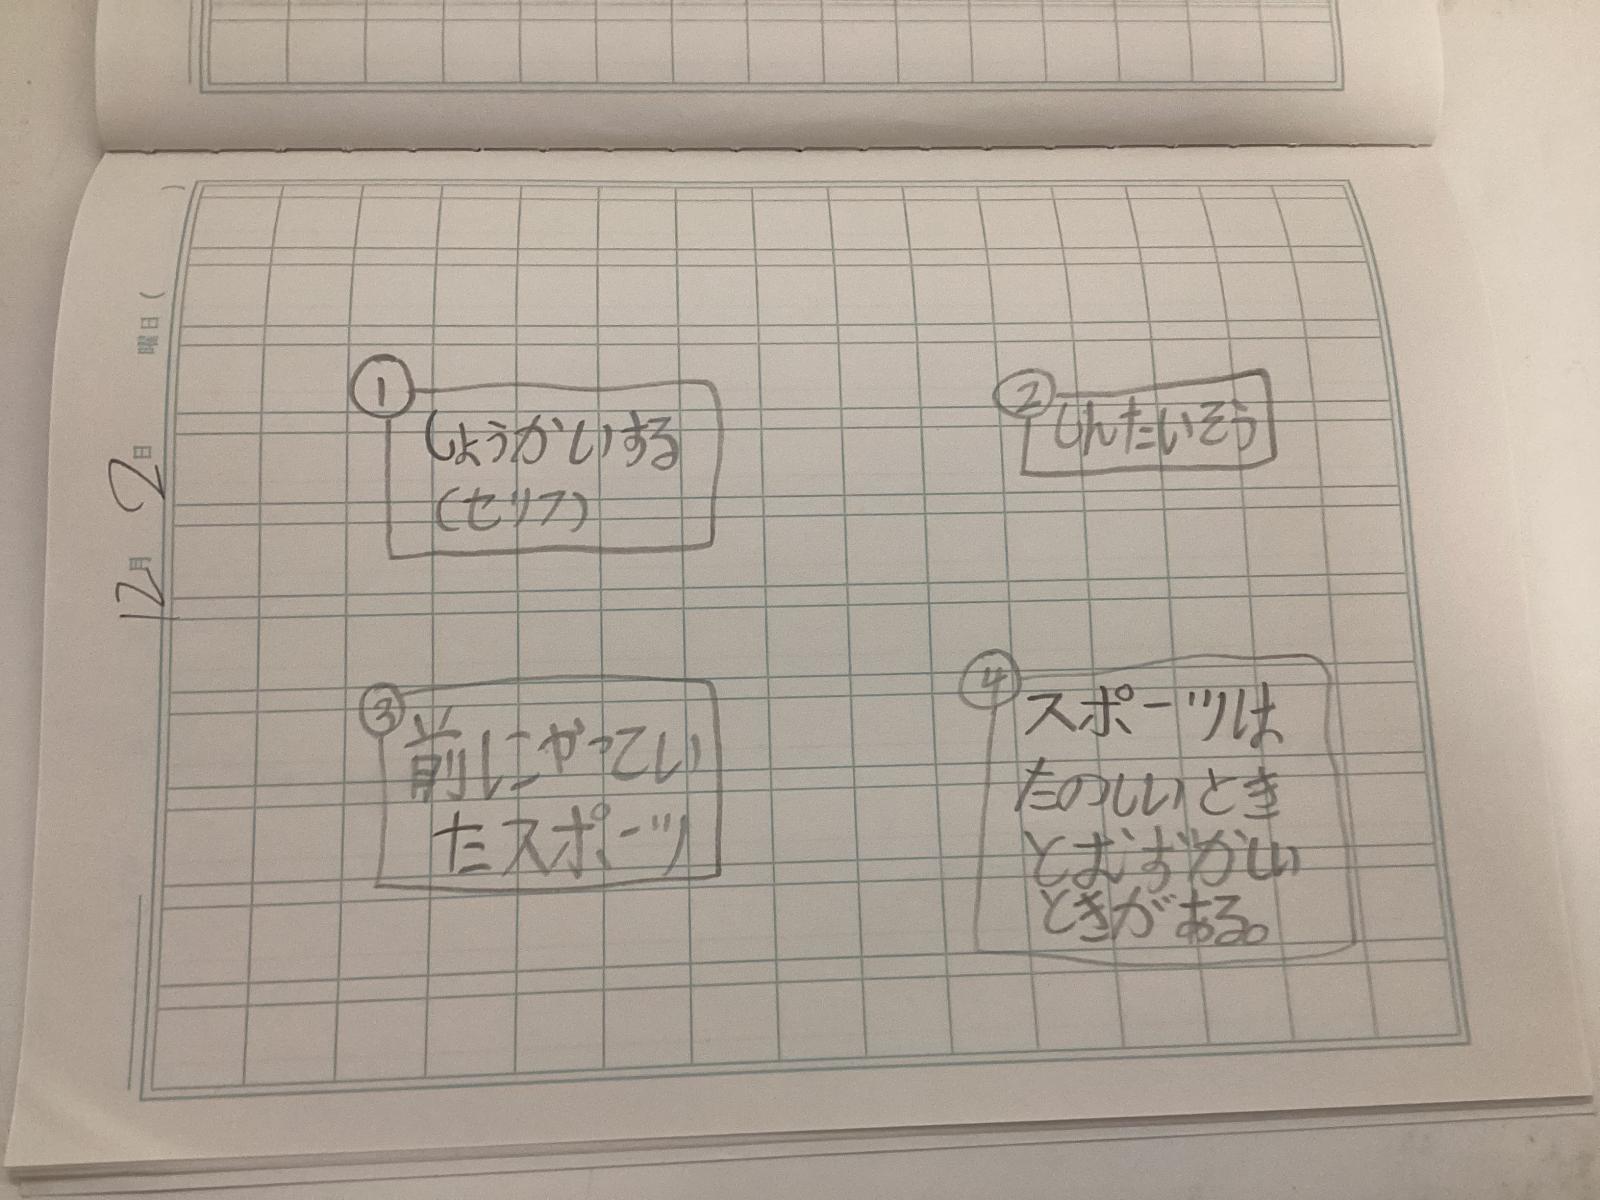 12月2日 曜日( )
①
しょうかいする
(セリフ)
②
しんたいそう
③
前にやってい
たスポーツ
④
スポーツは
たのしいとき
とむずかしい
ときがある。